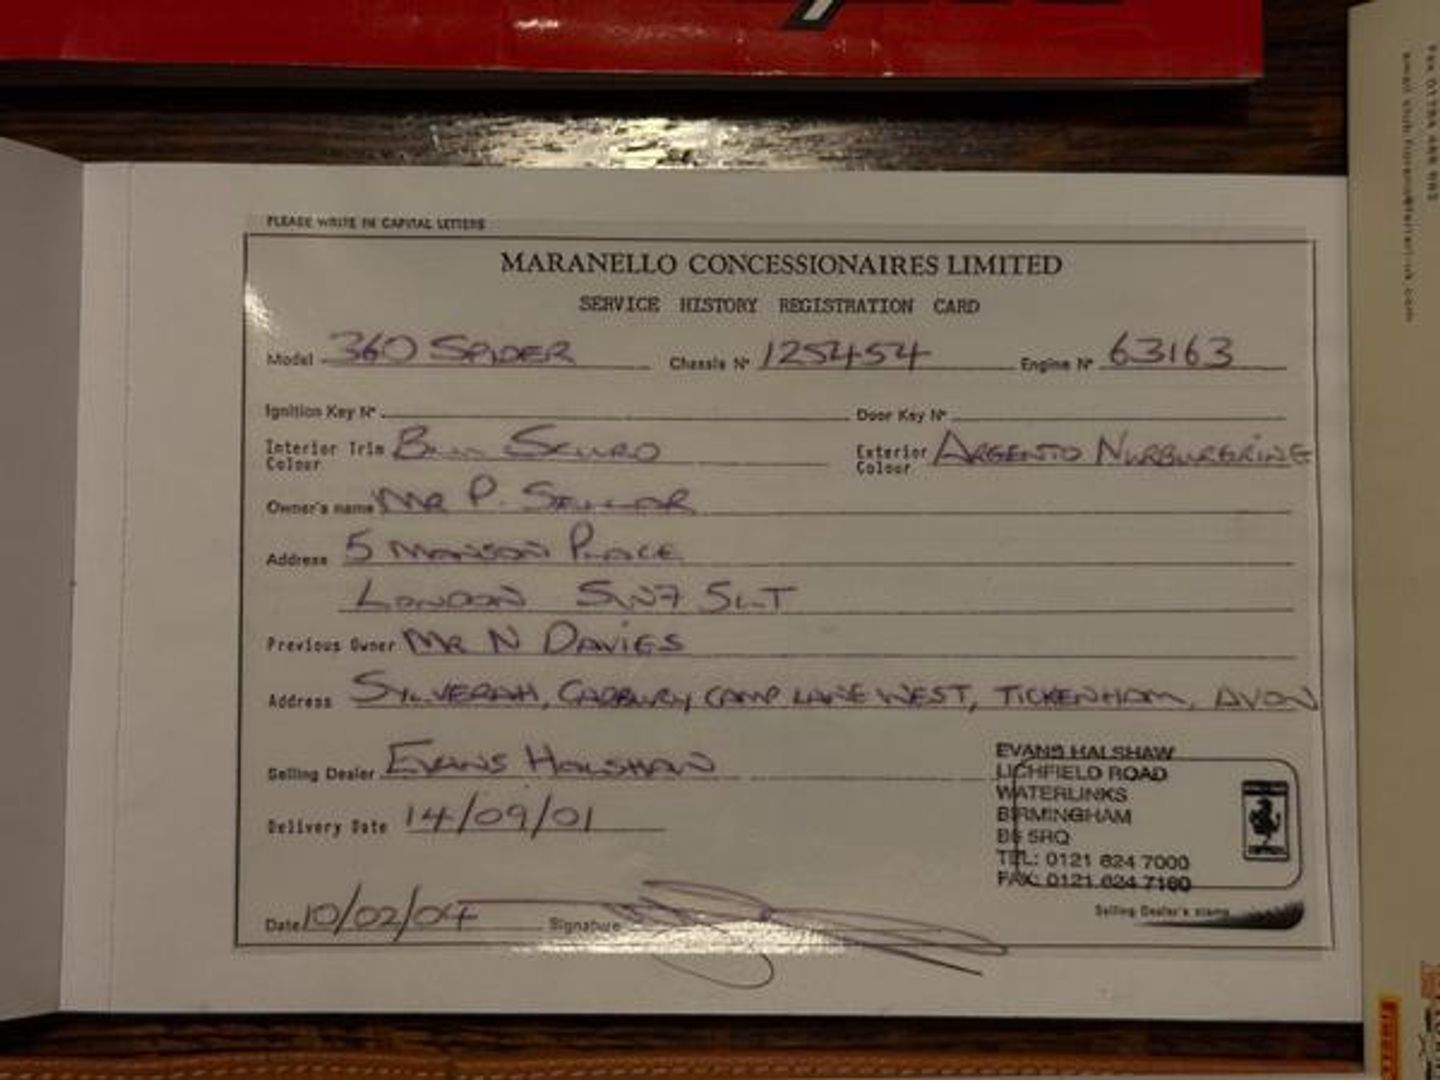 PLEASE WRITE IN CAPITAL LETTERS
MARANELLO CONCESSIONAIRES LIMITED
SERVICE HISTORY REGISTRATION CARD
Model 360 SPIDER Chassis Nº 125454 Engine Nº 63163
Ignition Key Nº Door Key Nº
Interior Trim Colour SCURO Exterior Colour ARGENTO NURBURGRING
Owner's name MR P.
Address 5 MANSON PLACE
LONDON SW7 5LT
Previous Owner MR N DAVIES
Address CADBURY CAMP LANE WEST, TICKENHAM, AVON
Selling Dealer EVANS HALSHAW
EVANS HALSHAW
LICHFIELD ROAD
WATERLINKS
BIRMINGHAM
B6 5RQ
TEL: 0121 624 7000
FAX: 0121 624 7180
Delivery Date 14/09/01
Selling Dealer's stamp
Date 10/02/04 Signature